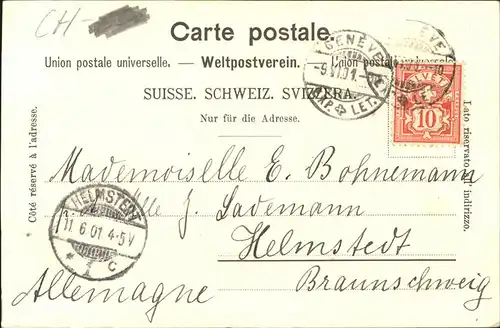 CH-
Carte postale.
Union postale universelle. — Weltpostverein. — Union postale universelle
SUISSE. SCHWEIZ. SVIZZERA.
Nur für die Adresse.
Côté réservé à l'adresse.
Lato riservato all' indirizzo.
GENÈVE
-9.VI.01.
EXP. LET.
HELVETIA
10
Mademoiselle E. Bohnemann
Ville J. Lademann
Helmstedt
Braunschweig
Allemagne
HELMSTEDT
11.6.01.4-5V
* 1 c